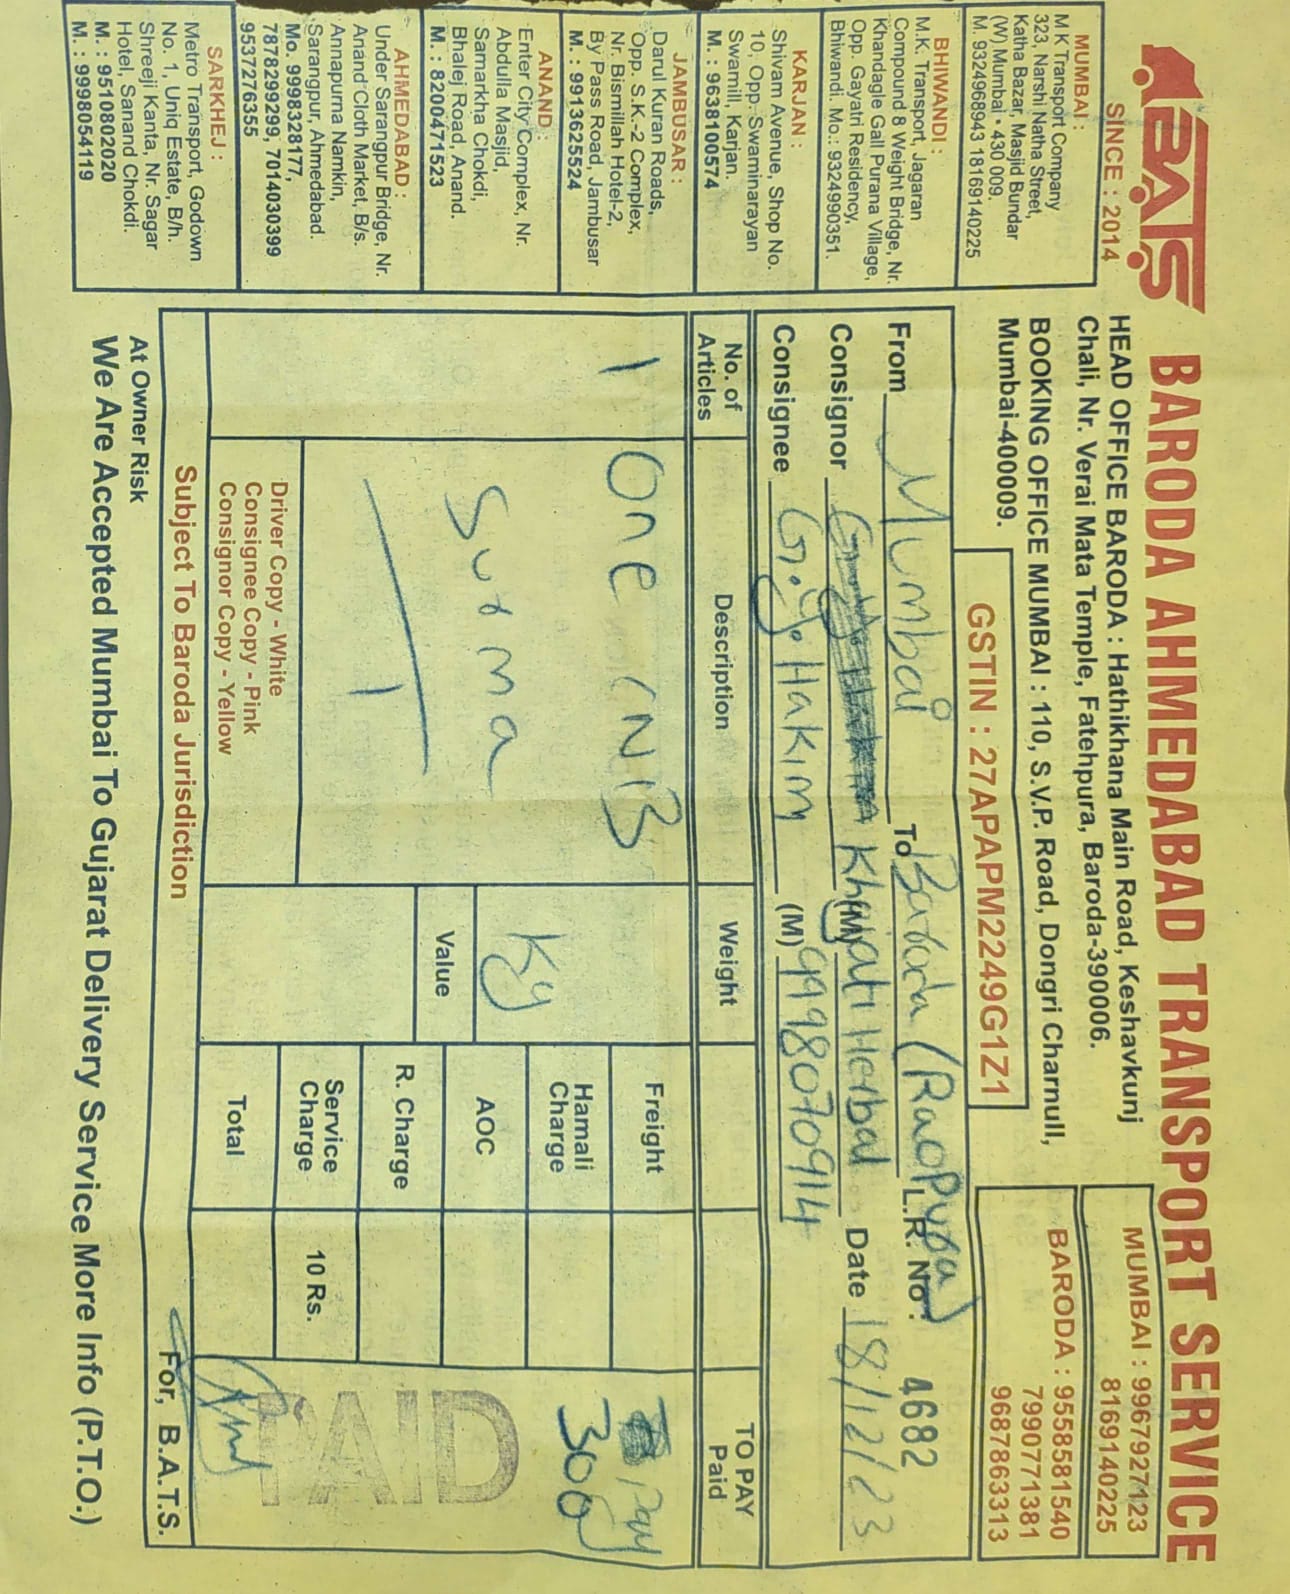 BATS
SINCE : 2014
BARODA AHMEDABAD TRANSPORT SERVICE
HEAD OFFICE BARODA : Hathikhana Main Road, Keshavkunj
Chali, Nr. Verai Mata Temple, Fatehpura, Baroda-390006.
BOOKING OFFICE MUMBAI : 110, S.V.P. Road, Dongri Charnull,
Mumbai-400009.
MUMBAI : 9967927123
8169140225
BARODA : 9558581540
7990771381
9687863313
GSTIN : 27APAPM2249G1Z1
MUMBAI :
M K Transport Company
323, Narshi Natha Street,
Katha Bazar, Masjid Bundar
(W) Mumbai • 430 009.
M. 9324968943 18169140225
BHIWANDI :
M.K. Transport, Jagaran
Compound 8 Weight Bridge, Nr.
Khandagle Gall Purana Village,
Opp. Gayatri Residency,
Bhiwandi. Mo.: 9324990351.
KARJAN :
Shivam Avenue, Shop No.
10, Opp. Swaminarayan
Swamill, Karjan.
M. : 9638100574
JAMBUSAR :
Darul Kuran Roads,
Opp. S.K.-2 Complex,
Nr. Bismillah Hotel-2,
By Pass Road, Jambusar
M. : 9913625524
ANAND :
Enter City Complex, Nr.
Abdulla Masjid,
Samarkha Chokdi,
Bhalej Road, Anand.
M. : 8200471523
AHMEDABAD :
Under Sarangpur Bridge, Nr.
Anand Cloth Market, B/s.
Annapurna Namkin,
Sarangpur, Ahmedabad.
Mo. 9998328177,
7878299299, 7014030399
9537276355
SARKHEJ :
Metro Transport, Godown
No. 1, Uniq Estate, B/h.
Shreeji Kanta, Nr. Sagar
Hotel, Sanand Chokdi.
M. : 9510802020
M. : 9998054119
From Mumbai To Baroda (Raopura) L.R. No. : 4682
Consignor Khayati Herbal (M) Date 18/12/23
Consignee G.Y. Hakim (M) 9998070914
No. of Articles Description Weight TO PAY Paid
1 One (N/B Freight Pay
Surma Kg Hamali Charge 300
1 Value AOC
R. Charge
Service Charge 10 Rs.
Total
PAID
Driver Copy - White
Consignee Copy - Pink
Consignor Copy - Yellow
Subject To Baroda Jurisdiction
For, B.A.T.S.
At Owner Risk
We Are Accepted Mumbai To Gujarat Delivery Service More Info (P.T.O.)